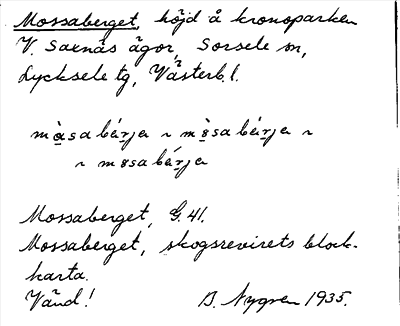 Mossaberget, höjd å kronoparken
V. Saxnäs ägor, Sorsele sn,
Lycksele tg, Västerb. l.
mòsabǽrja ~ mòsabǽrja ~
~ mosabǽrja
Mossaberget, G. 41.
Mossaberget, skogsrevirets block-
karta.
Vänd! B. Nygren 1935.